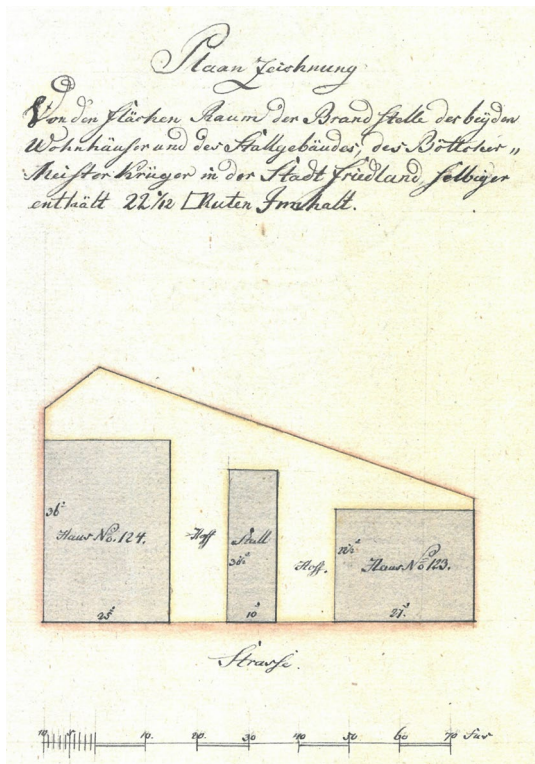 Plaan Zeichnung
Von den flächen Raum der Brandstelle der beyden
Wohnhäuser und des Stallgebäudes, des Böttcher〃
Meister Krüger in der Stadt Friedland, selbiger
enthält 22 □Ruten Innhalt.
36
Haus No. 124.
25
Hoff
Stall
10
Hoff.
Haus No 123.
27.
Strasse.
10 10. 20 30 40 50 60 70 Fus